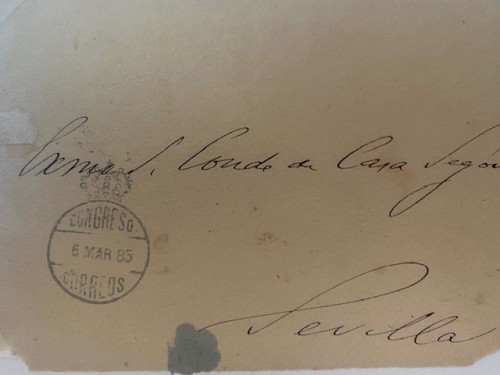 Exmo S. Conde de Casa Segóv
CONGRESO
6 MAR 85
CORREOS
Sevilla